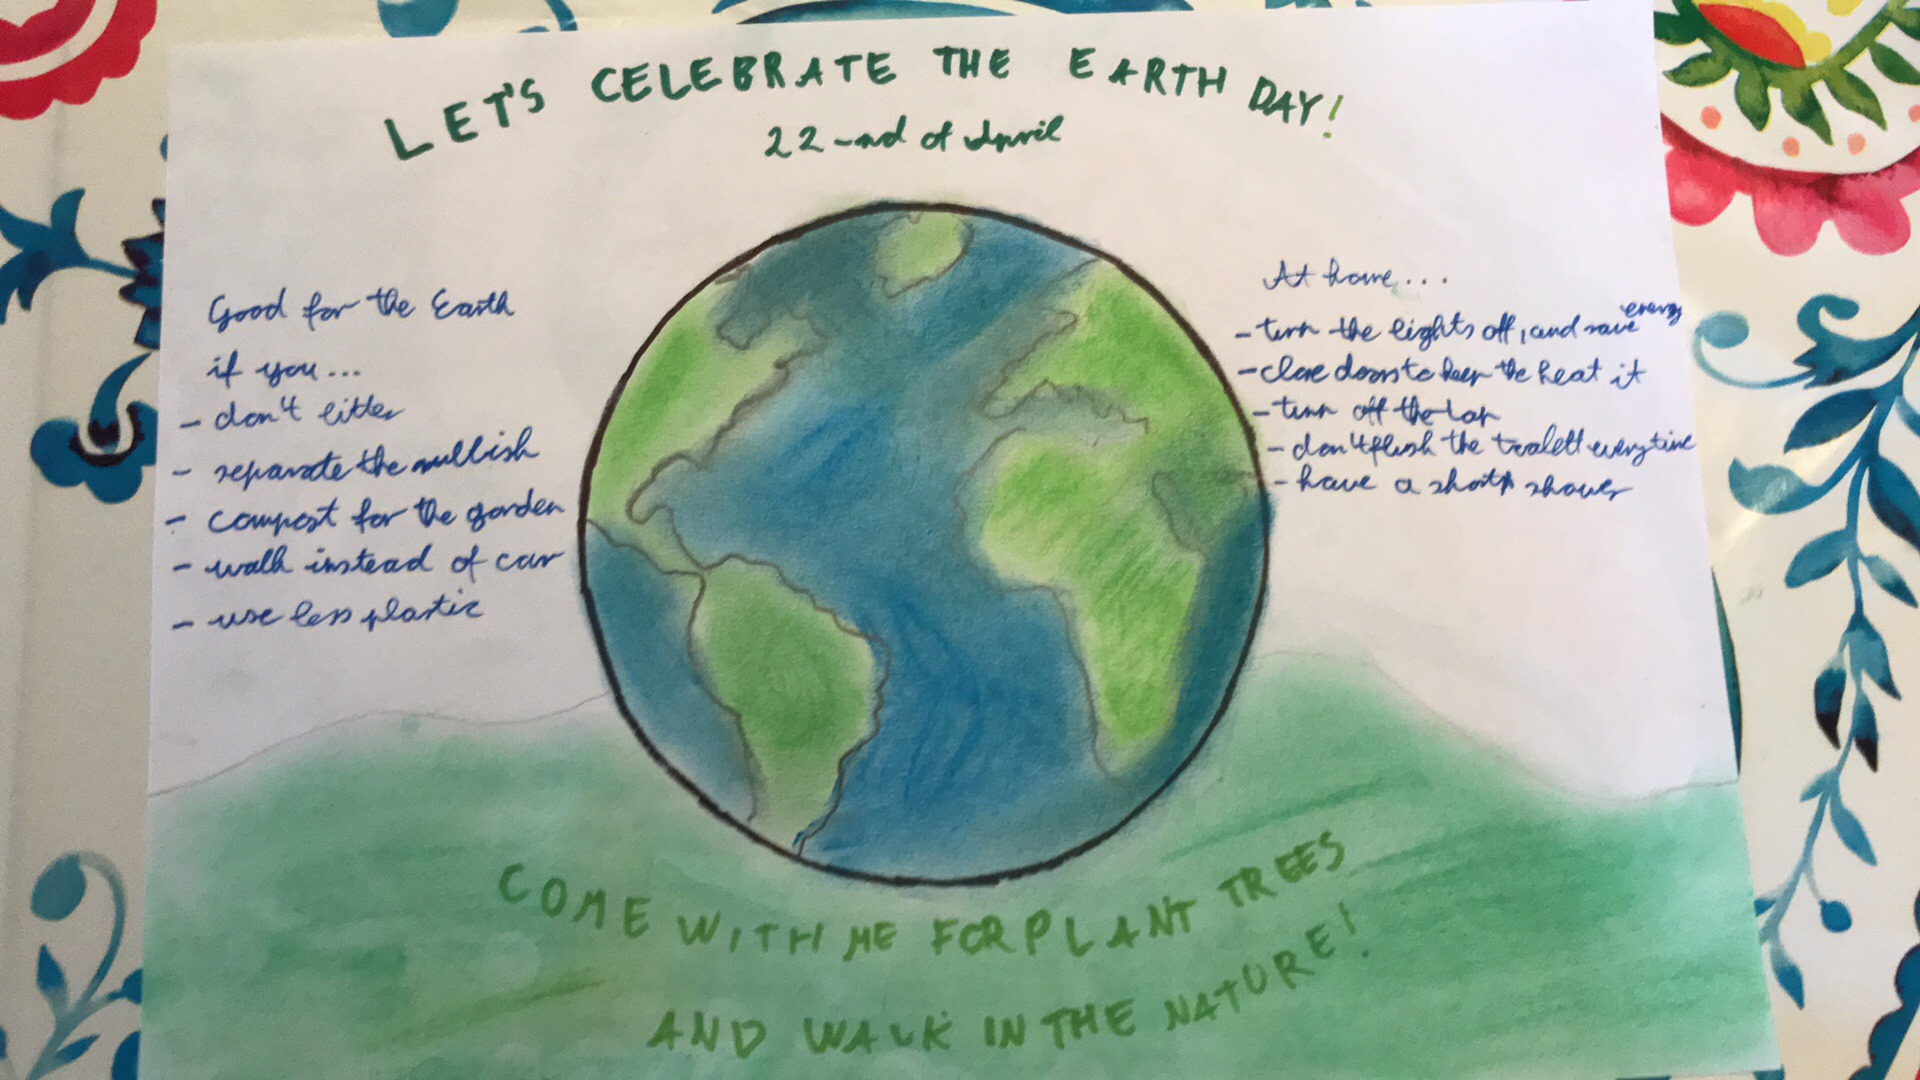 LET'S CELEBRATE THE EARTH DAY!
22-nd of April
Good for the Earth
if you...
- don't litter
- separate the rubbish
- compost for the garden
- walk instead of car
- use less plastic
At home...
- turn the lights off, and save energy
- close doors to keep the heat it
- turn off the tap
- don't flush the everytime
- have a short shower
COME WITH ME FOR PLANT TREES
AND WALK IN THE NATURE!